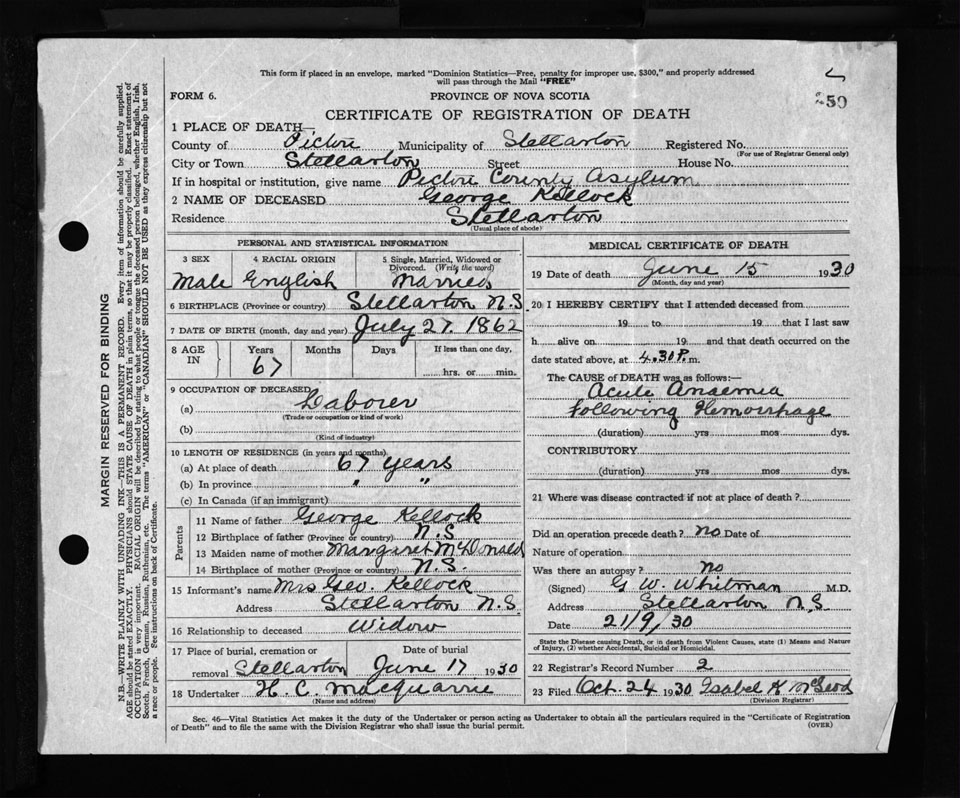 This form if placed in an envelope, marked "Dominion Statistics—Free, penalty for improper use, $300," and properly addressed
will pass through the Mail "FREE"
FORM 6. PROVINCE OF NOVA SCOTIA
250
CERTIFICATE OF REGISTRATION OF DEATH
1 PLACE OF DEATH—
County of Pictou Municipality of Stellarton Registered No.
(For use of Registrar General only)
City or Town Stellarton Street House No.
If in hospital or institution, give name Pictou County Asylum
2 NAME OF DECEASED George Kellock
Residence Stellarton
(Usual place of abode)
PERSONAL AND STATISTICAL INFORMATION
3 SEX 4 RACIAL ORIGIN 5 Single, Married, Widowed or Divorced. (Write the word)
Male English Married
6 BIRTHPLACE (Province or country) Stellarton N.S.
7 DATE OF BIRTH (month, day and year) July 27. 1862
8 AGE IN Years Months Days If less than one day,
67 hrs. or min.
9 OCCUPATION OF DECEASED
(a) Laborer
(Trade or occupation or kind of work)
(b)
(Kind of industry)
10 LENGTH OF RESIDENCE (in years and months)
(a) At place of death 67 years
(b) In province " "
(c) In Canada (if an immigrant)
Parents
11 Name of father George Kellock
12 Birthplace of father (Province or country) N.S
13 Maiden name of mother Margaret McDonald
14 Birthplace of mother (Province or country) N.S.
15 Informant's name Mrs Geo. Kellock
Address Stellarton N.S.
16 Relationship to deceased Widow
17 Place of burial, cremation or removal Stellarton Date of burial June 17 1930
18 Undertaker H. C. MacQuarrie
(Name and address)
MEDICAL CERTIFICATE OF DEATH
19 Date of death June 15 1930
(Month, day and year)
20 I HEREBY CERTIFY that I attended deceased from
19 to 19 that I last saw
h alive on 19 and that death occurred on the
date stated above, at 4.30 P.m.
The CAUSE of DEATH was as follows:—
Acute Anaemia
following Hemorrhage
(duration) yrs mos dys.
CONTRIBUTORY
(duration) yrs mos dys.
21 Where was disease contracted if not at place of death?
Did an operation precede death? no Date of
Nature of operation
Was there an autopsy? no
(Signed) G W. Whitman M.D.
Address Stellarton N.S.
Date 21/9/30
State the Disease causing Death, or in death from Violent Causes, state (1) Means and Nature
of Injury, (2) whether Accidental, Suicidal or Homicidal.
22 Registrar's Record Number 2
23 Filed Oct. 24 1930 Isabel K McLeod
(Division Registrar)
Sec. 46—Vital Statistics Act makes it the duty of the Undertaker or person acting as Undertaker to obtain all the particulars required in the "Certificate of Registration
of Death" and to file the same with the Division Registrar who shall issue the burial permit. (OVER)
MARGIN RESERVED FOR BINDING
N.B.—WRITE PLAINLY WITH UNFADING INK—THIS IS A PERMANENT RECORD. Every item of information should be carefully supplied.
AGE should be stated EXACTLY. PHYSICIANS should STATE CAUSE OF DEATH in plain terms, so that it may be properly classified. Exact statement of
OCCUPATION is very important. RACIAL ORIGIN will be described by stating to what people or tongue the deceased person belonged, whether English, Irish,
Scotch, French, German, Russian, Ruthenian, etc. The terms "AMERICAN" or "CANADIAN" SHOULD NOT BE USED as they express citizenship but not
a race or people. See instructions on back of Certificate.